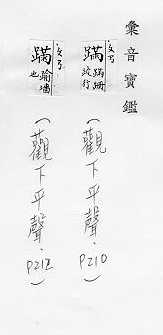 彙音寶鑑
ㄆㄢˊ
蹣 蹣跚
跛行
(觀下平聲.P210)
蹣 踰墻
也
(觀下平聲.P212)